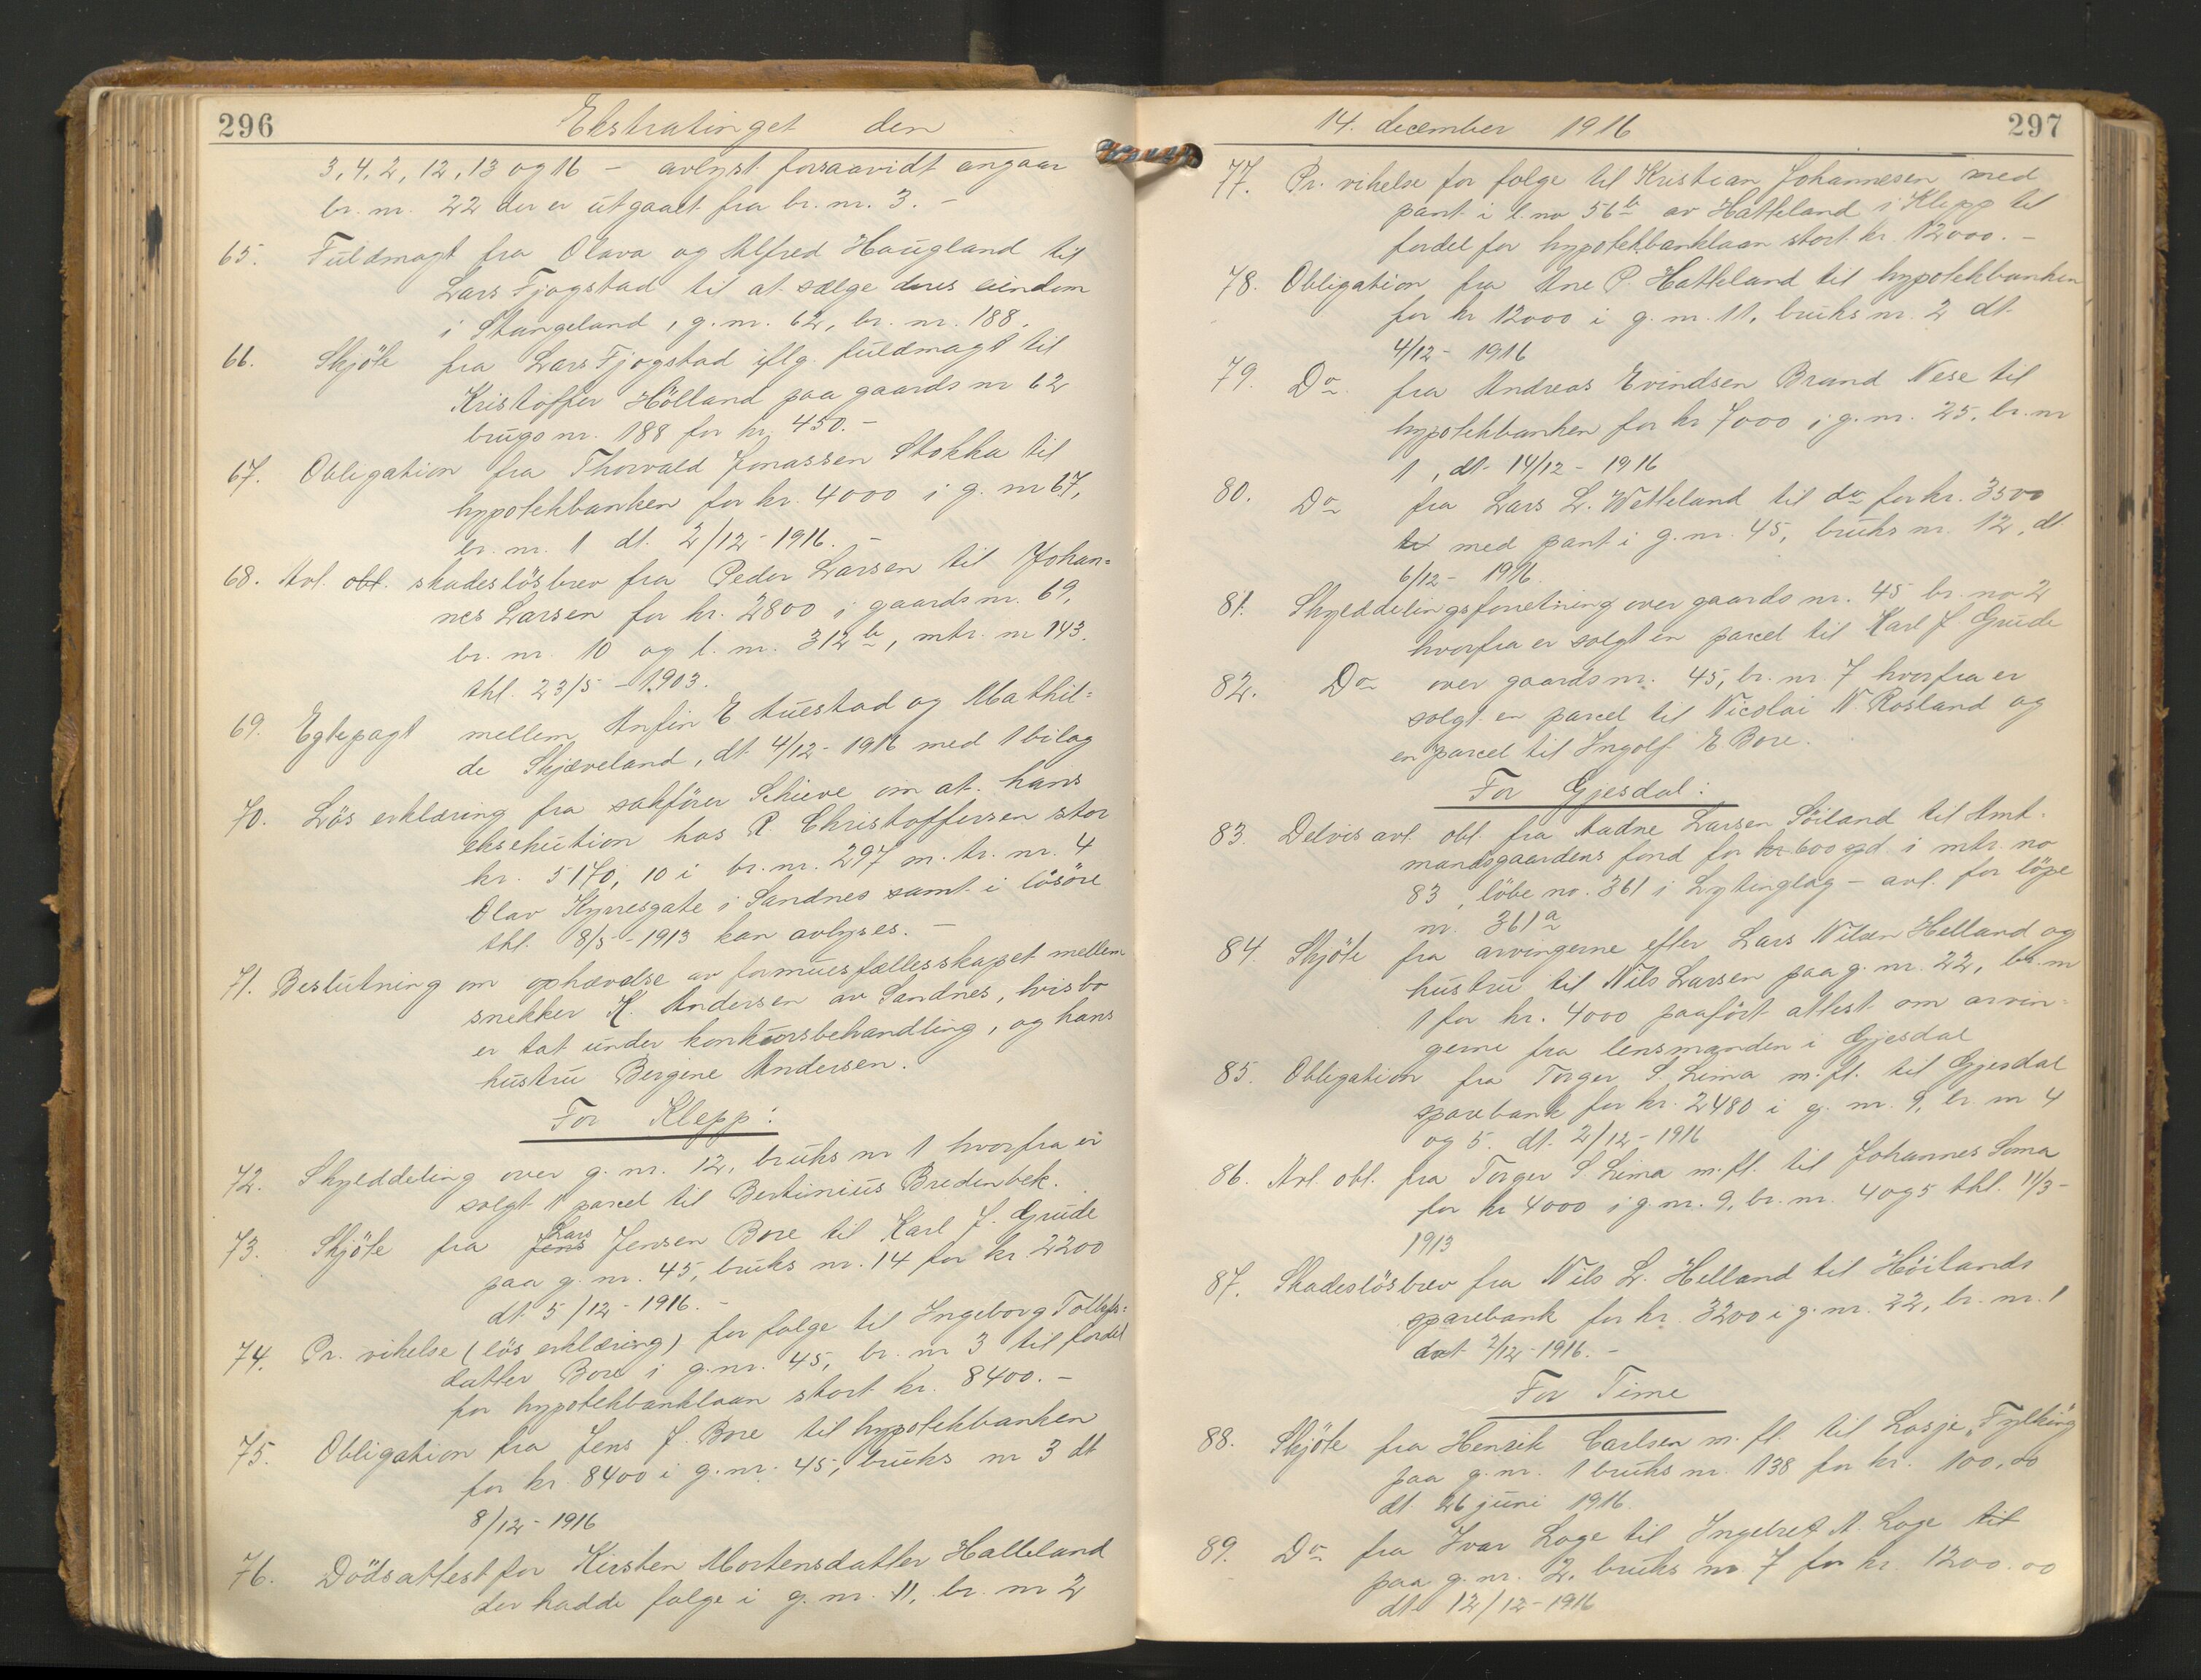 296
Ekstratinget den
3, 4, 2, 12, 13 og 16 - avlyst forsaavidt angaar
br. nr. 22 der er utgaaet fra br. nr. 3. -
65. Fuldmagt fra Olava og Alfred Haugland til
Lars Fjogstad til at sælge deres eiendom
i Stangeland, g. nr. 62, br. nr. 188.
66. Skjöte fra Lars Fjogstad iflg. fuldmagt til
Kristoffer Hölland paa gaards nr 62
brugs nr. 188 for kr. 450.-
67. Obligation fra Thorvald Jonassen Stokka til
hypotekbanken for kr. 4000 i g. nr 67,
br. nr. 1 dt. 2/12 - 1916. -
68. Avl. obl. skadeslösbrev fra Peder Larsen til Johan=
nes Larsen for kr. 2800 i gaards nr. 69,
br. nr. 10 og l. nr. 312 b, mtr. nr 143.
thl. 23/5 - 1903.
69. Egtepagt mellem Anfin E Auestad og Mathil=
de Skjæveland, dt. 4/12 - 1916 med 1 bilag
70. Lös erklæring fra sakförer Schieve om at hans
eksekution hos R. Christoffersen stor
kr. 5170,10 i br. nr. 297 m. tr. nr. 4
Olav Kyrresgate i Sandnes samt i lösöre
thl. 8/5 - 1913 kan avlyses. -
71. Beslutning om ophævelse av formuesfællesskapet mellem
snekker K. Andersen av Sandnes, hvis bo
er tat under konkursbehandling, og hans
hustru Bergine Andersen.
For Klepp:
72. Skylddeling over g. nr. 12, bruks nr 1 hvorfra er
solgt 1 parcel til Bertinius Bredenbek.
73. Skjöte fra Jens Lars Jensen Bore til Karl J. Grude
paa g. nr. 45, bruks nr. 14 for kr 2200
dt. 5/12 - 1916. -
74. Pr. vikelse (lös erklæring) for folge til Ingeborg Tollefs=
datter Bore i g. nr. 45, br. nr 3 til fordel
for hypotekbanklaan stort kr. 8400. -
75. Obligation fra Jens J. Bore til hypotekbanken
for kr. 8400 i g. nr. 45, bruks nr 3 dt
8/12 - 1916
76. Dödsattest for Kirsten Mortensdatter Hatteland
der hadde folge i g. nr. 11, br. nr 2
14. december 1916
297
77. Pr. vikelse for folge til Kristian Johannesen med
pant i l. no 56 b av Hatteland i Klepp til
fordel for hypotekbanklaan stort kr. 12000. -
78. Obligation fra Ane P. Hatteland til hypotekbanken
for kr 12000 i g. nr. 11, bruks nr. 2 dt.
4/12 - 1916
79. Do fra Andreas Evindsen Brand Nese til
hypotekbanken for kr 7000 i g. nr. 25, br. nr
1, dt. 14/12 - 1916
80. Do fra Lars L. Wetteland til do for kr. 3500
til med pant i g. nr. 45, bruks nr. 12, dt
6/12 - 1916.
81. Skylddelingsforretning over gaards nr. 45 br. no 2
hvorfra er solgt en parcel til Karl J Grude
82. Do over gaards nr. 45, br. nr 7 hvorfra er
solgt en parcel til Nicolai N. Rosland og
en parcel til Ingolf E Bore.
For Gjesdal:
83. Delvis avl. obl. fra Aadne Larsen Söiland til Amt-
mandsgaardens fond for kr 600 spd. i mtr. no
83, löbe no. 361 i Lytinglag - avl. for löpe
nr. 361 a
84. Skjöte fra arvingerne efter Lars Nilsen Helland og
hustru til Nils Larsen paa g. nr. 22, br. nr
1 for kr. 4000 paafört attest om arvin=
gerne fra lensmanden i Gjesdal
85. Obligation fra Torger S. Lima m. fl. til Gjesdal
sparebank for kr. 2480 i g. nr. 9, br. nr 4
og 5. dt. 2/12 - 1916
86. Avl. obl. fra Torger S Lima m. fl. til Johannes Soma
for kr 4000 i g. nr. 9, br. nr. 4 og 5 thl. 11/3 -
1913
87. Skadeslösbrev fra Nils L. Helland til Höilands
sparebank for kr. 3200 i g. nr. 22, br. nr. 1
dat 2/12 - 1916. -
For Time
88. Skjöte fra Henrik Carlsen m. fl. til Losje "Fylking"
paa g. nr. 1 bruks nr. 138 for kr. 100,00
dt. 26 juni 1916.
89. Do fra Ivar Loge til Ingebret A. Loge til
paa g. nr. 2, bruks nr 7 for kr 1200.00
dt. 12/12 - 1916